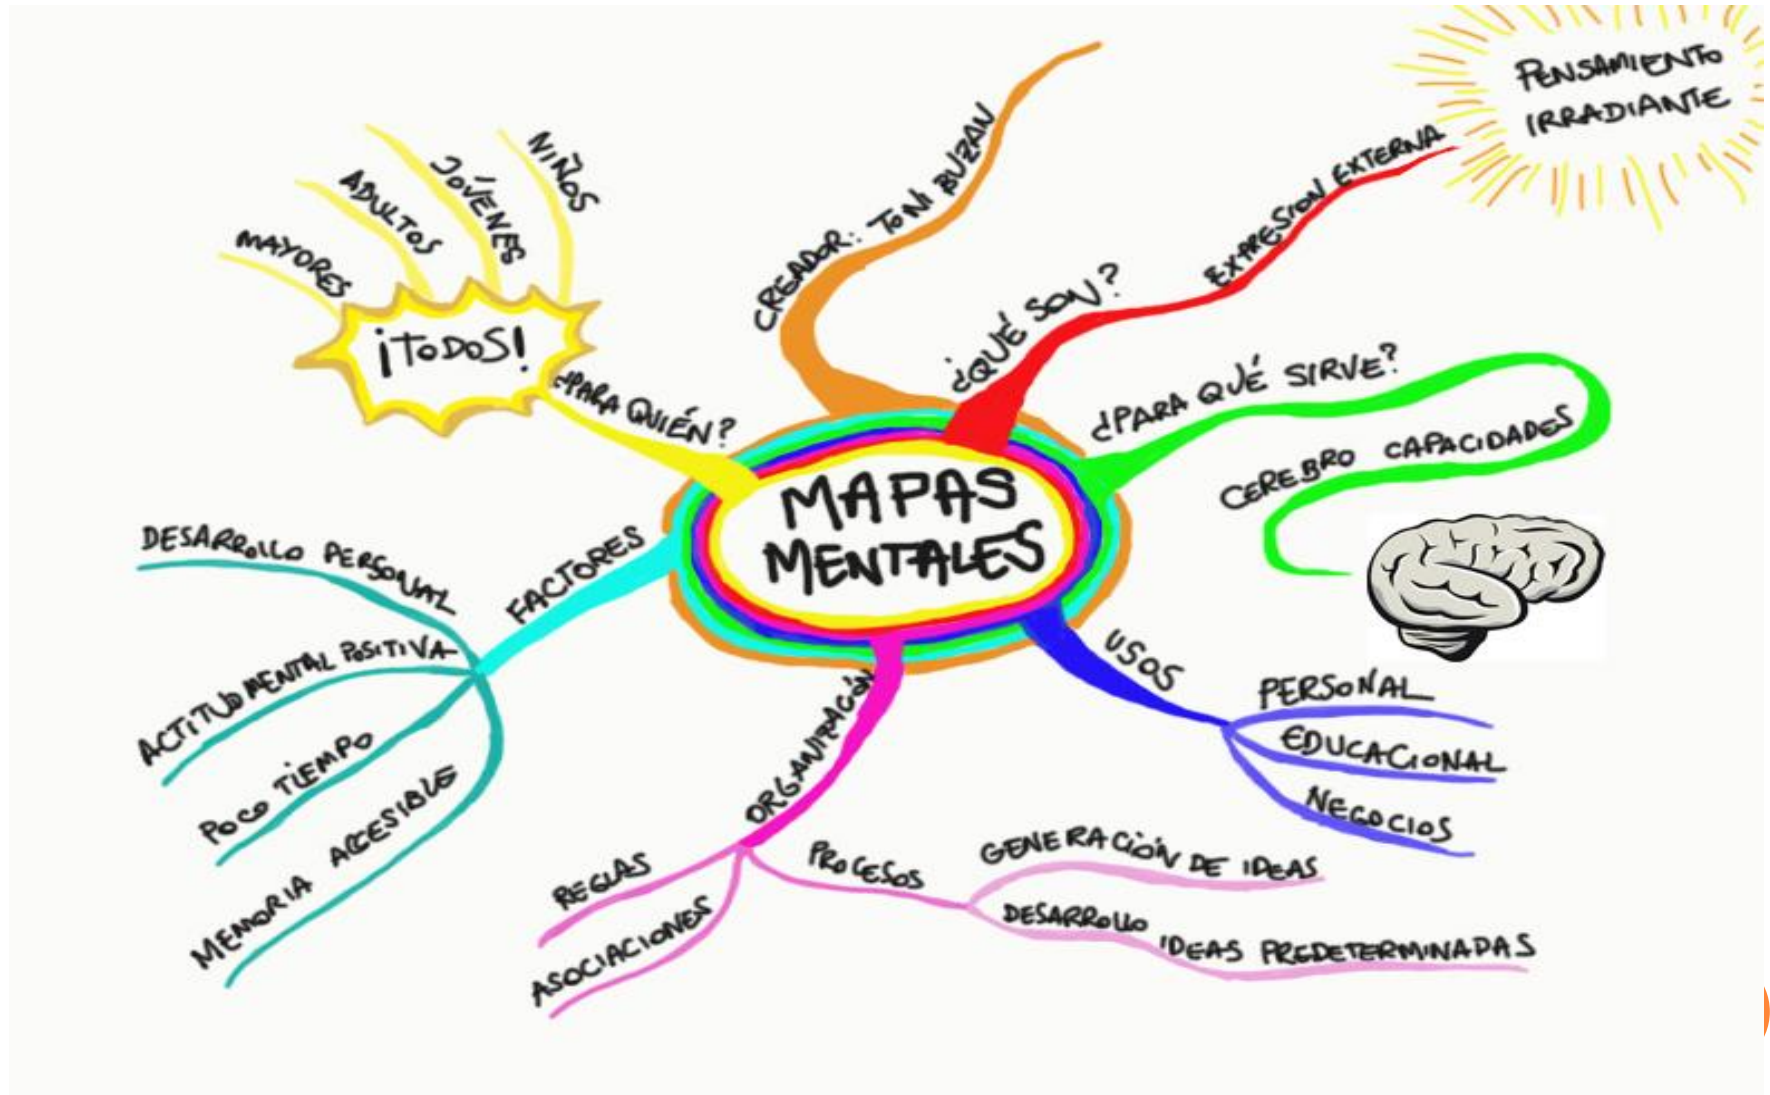 MAPAS
MENTALES
CREADOR: TONI BUZAN
¿QUÉ SON?
EXPRESION EXTERNA
PENSAMIENTO
IRRADIANTE
¿PARA QUÉ SIRVE?
CEREBRO CAPACIDADES
USOS
PERSONAL
EDUCACIONAL
NEGOCIOS
ORGANIZACIÓN
PROCESOS
GENERACIÓN DE IDEAS
DESARROLLO IDEAS PREDETERMINADAS
REGLAS
ASOCIACIONES
FACTORES
DESARROLLO PERSONAL
ACTITUD MENTAL POSITIVA
POCO TIEMPO
MEMORIA ACCESIBLE
¿PARA QUIÉN?
¡TODOS!
MAYORES
ADULTOS
JÓVENES
NIÑOS